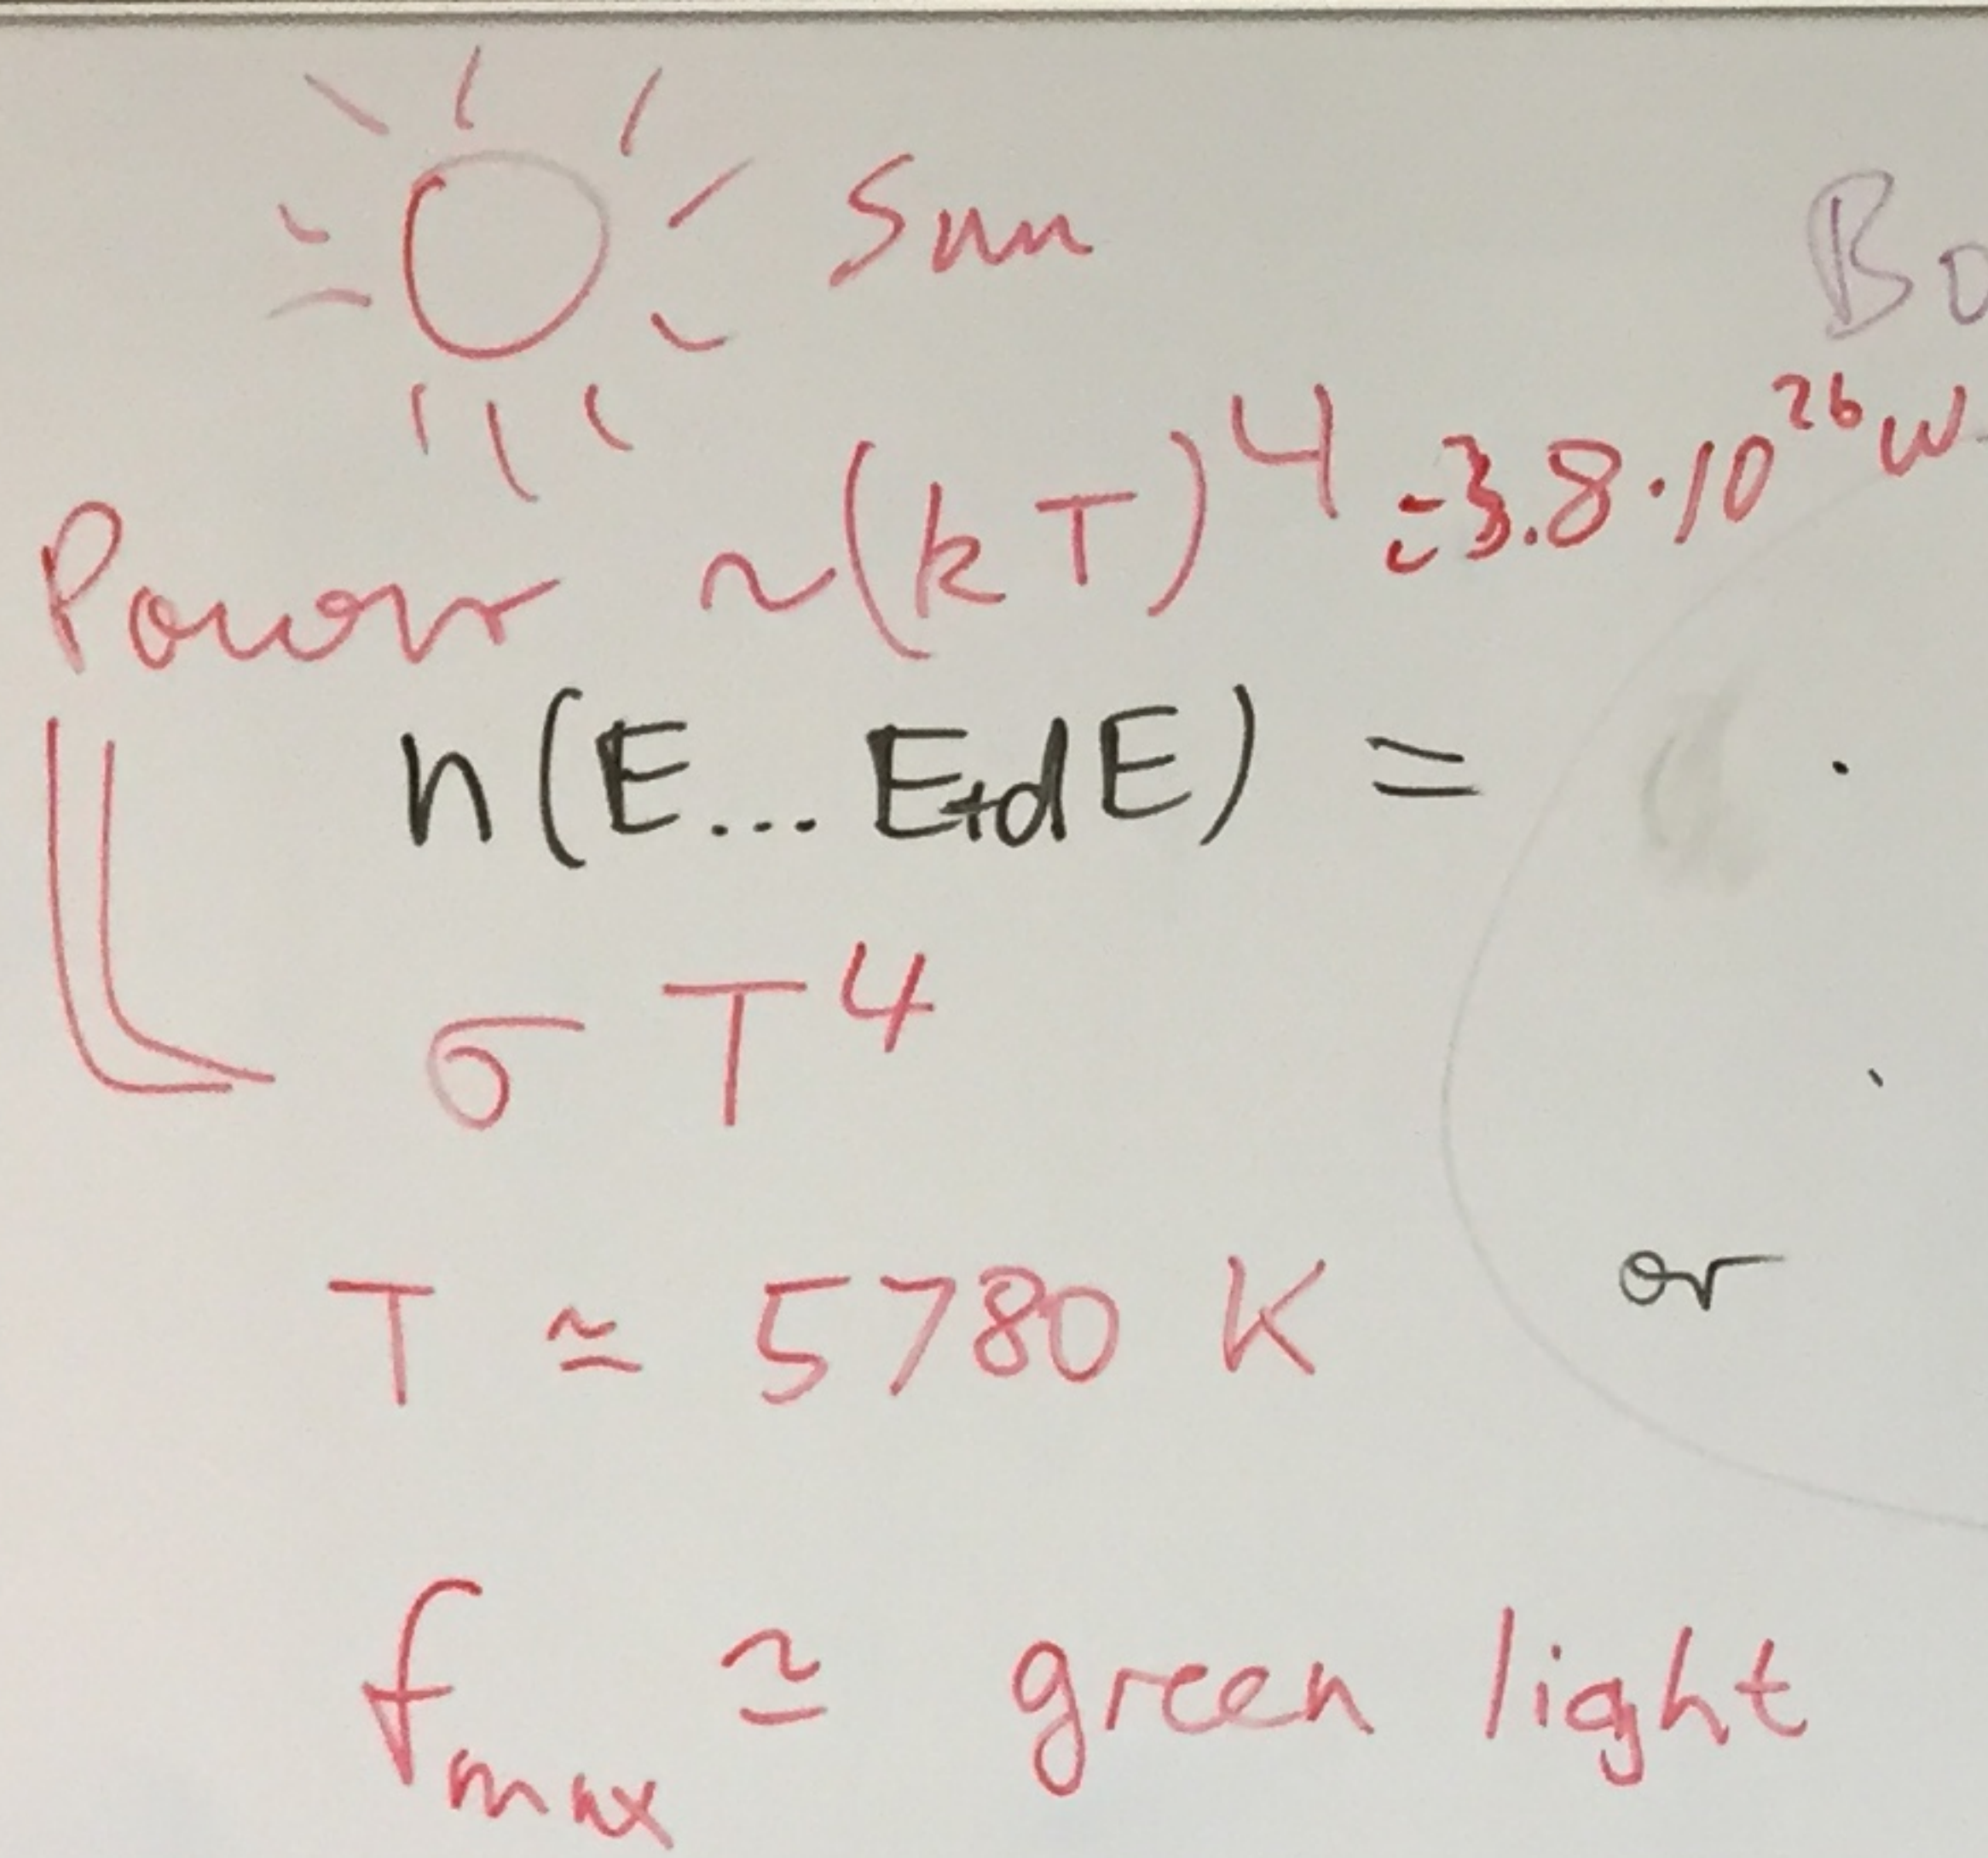 Sun
Bo
Power ~(kT)⁴ = 3.8·10²⁶ W
n(E... E+dE) =
σ T⁴
T ≃ 5780 K or
f_max ≃ green light